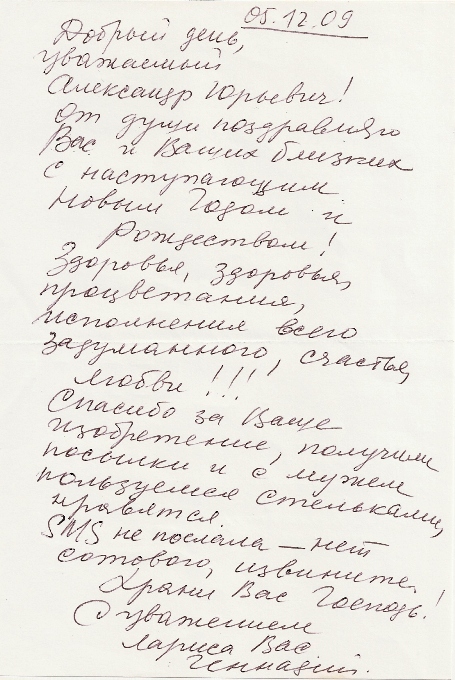 05.12.09
Добрый день,
уважаемый
Александр Юрьевич!
от души поздравляю
Вас и Ваших близких
с наступающим
Новым Годом и
Рождеством!
Здоровья, здоровья,
процветания,
исполнения всего
задуманного, счастья,
любви!!!
Спасибо за Ваше
изобретение, получили
посылки и с мужем
пользуемся стельками,
нравятся.
SMS не послала – нет
сотового, извините.
Храни Вас Господь!
С уважением
Лариса Вас
Геннадий.